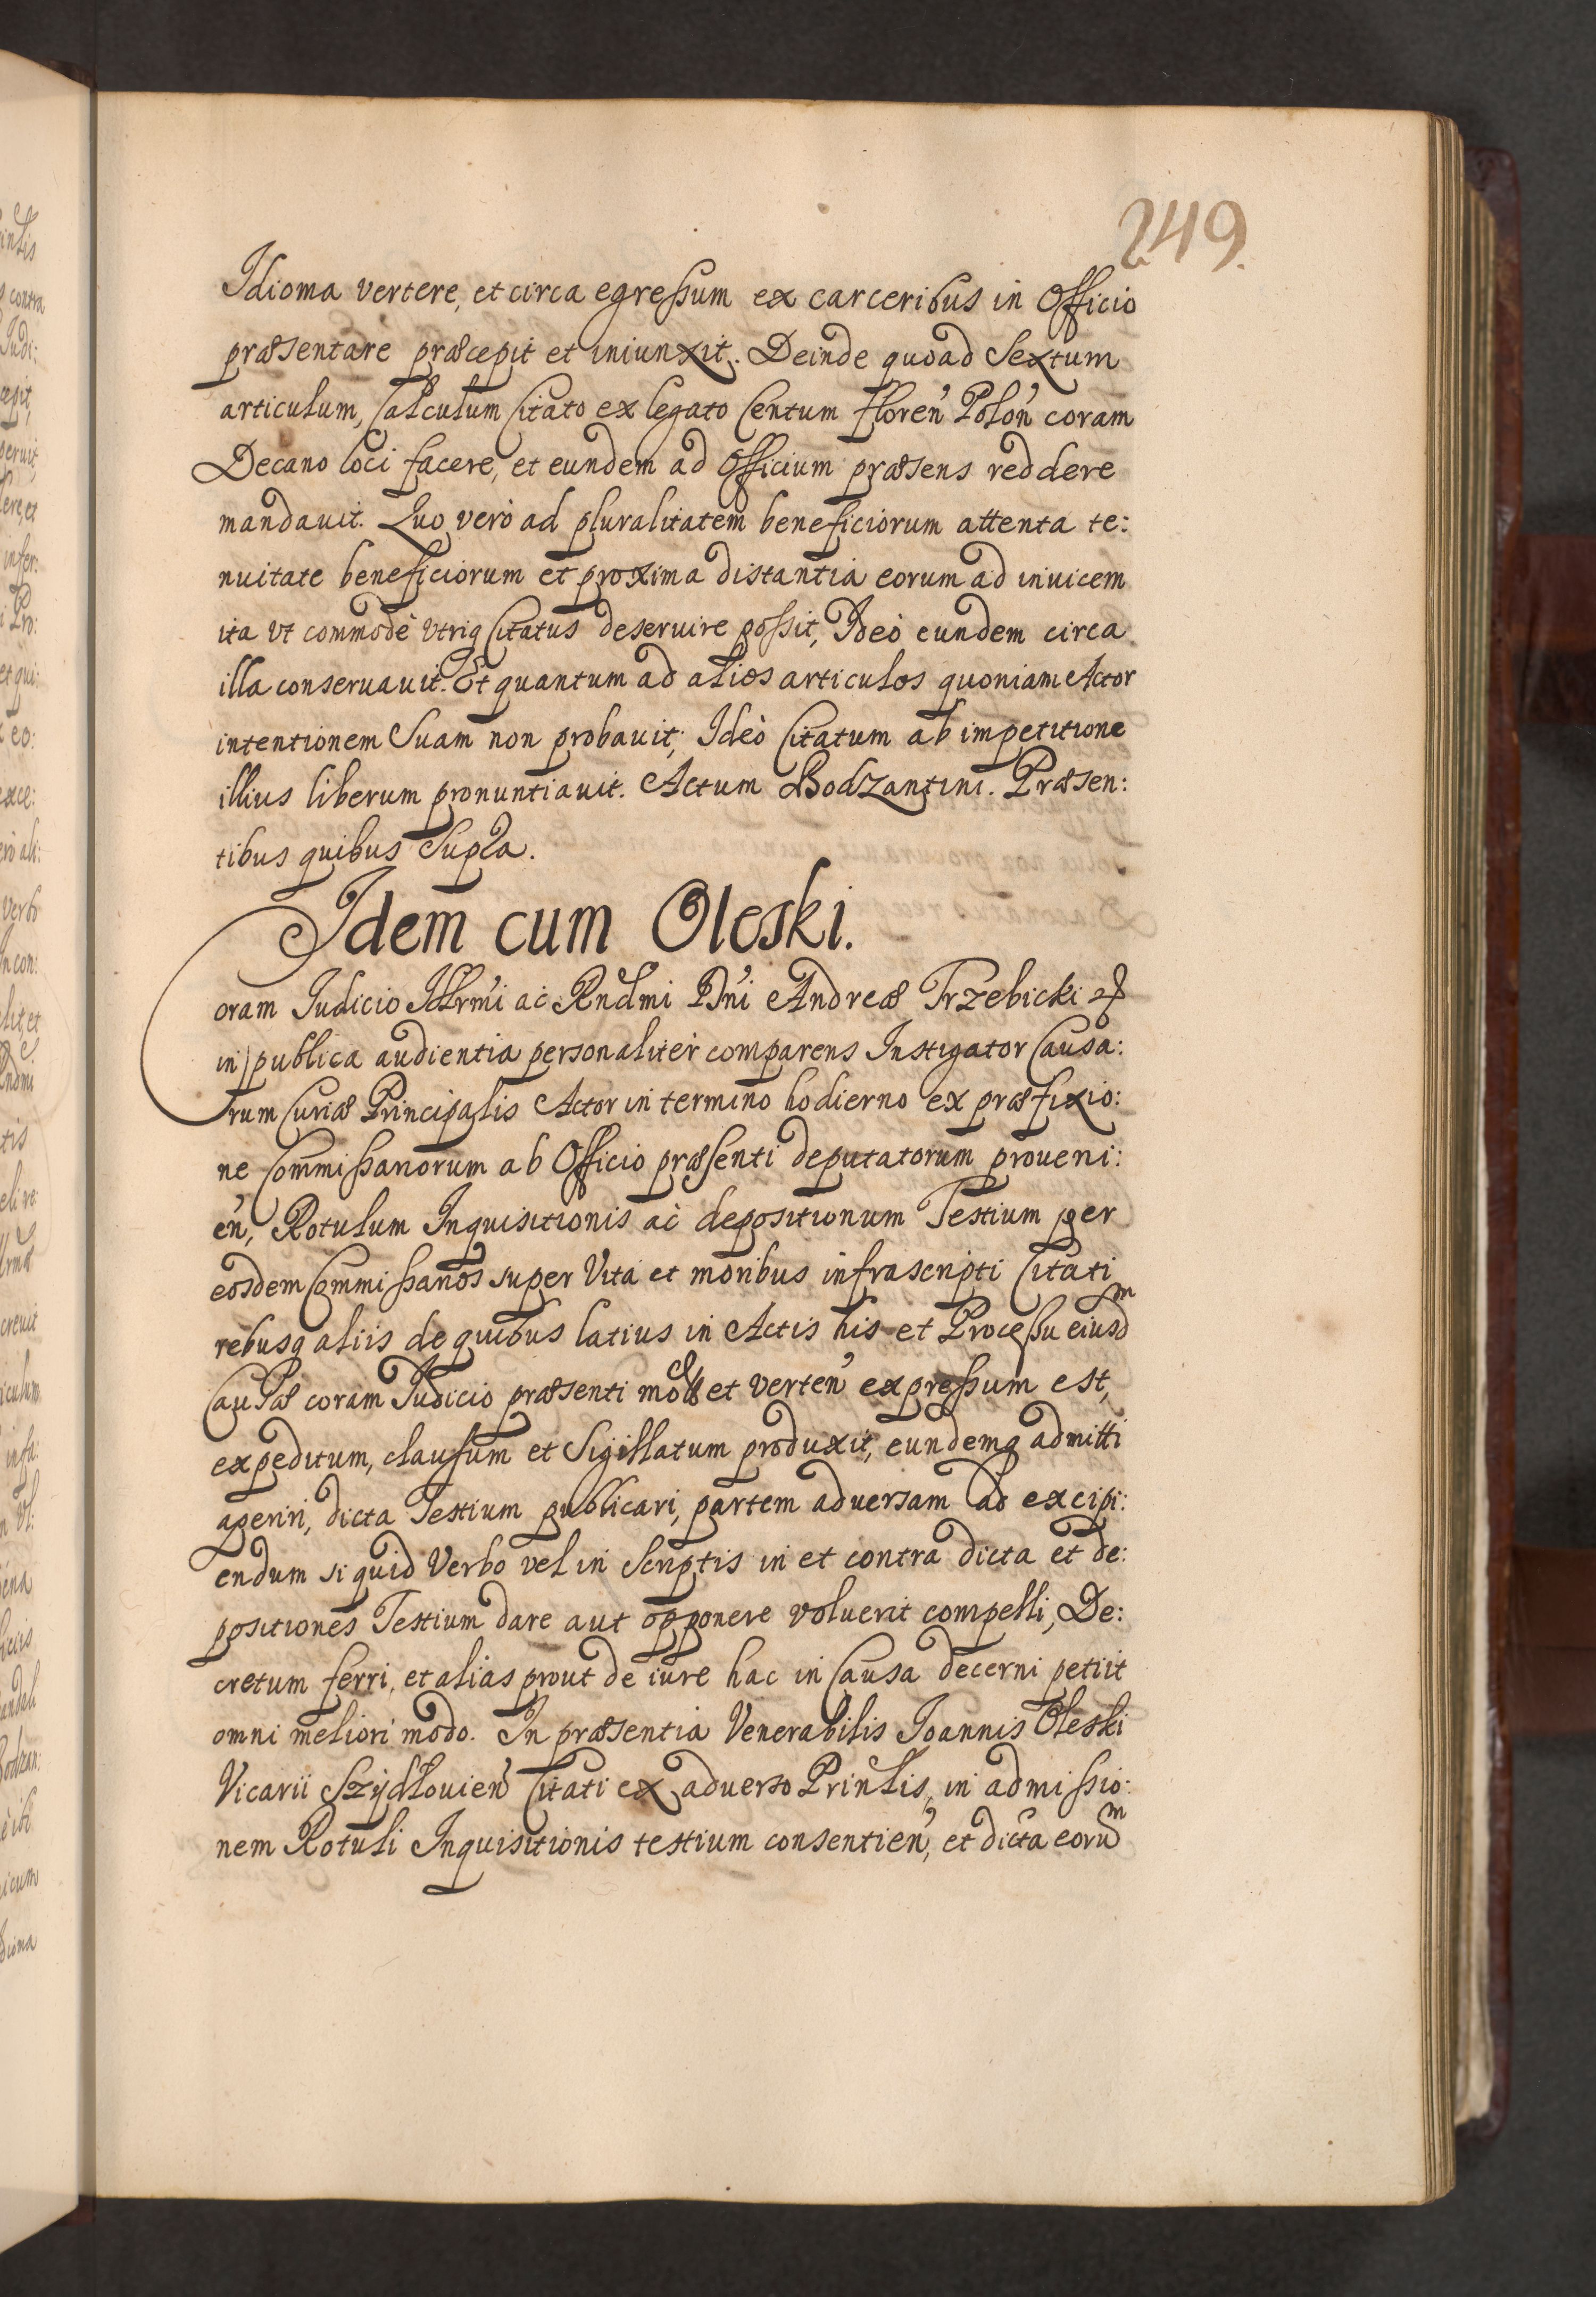 249.
Idioma vertere, et circa egressum ex carceribus in Officio
præsentare præcepit et iniunxit. Deinde quoad Sextum
articulum, Calculum Citato ex legato Centum Floren̄ Polon̄ coram
Decano loci facere, et eundem ad Officium præsens reddere
mandauit. Quo verò ad pluralitatem beneficiorum attenta te:
nuitate beneficiorum et proxima distantia eorum ad inuicem
ita vt commodè vtriq Citatus deseruire possit, Ideò eundem circa
illa conseruauit. Et quantum ad alios articulos quoniam Actor
intentionem Suam non probauit; Ideò Citatum ab impetitione
illius liberum pronuntiauit. Actum Bodzantini. Præsen:
tibus quibus Supra.
Idem cum Oleski.
Coram Iudicio Illrmi ac Rndmi Dni Andreæ Trzebicki &
in publica audientia personaliter comparens Instigator Causa:
rum Curiæ Principalis Actor in termino hodierno ex præfixio:
ne Commissariorum ab Officio præsenti deputatorum proueni:
en, Rotulum Inquisitionis ac depositionum Testium per
eosdem Commissarios super Vita et moribus infrascripti Citati
rebusq aliis de quibus latius in Actis his et Processu eiusdm
Causæ coram Iudicio præsenti et verten̄ expressum est,
expeditum, clausum et Sigillatum produxit, eundemq admitti
aperiri, dicta Testium publicari, partem aduersam ad excipi:
endum si quid Verbo vel in Scriptis in et contra dicta et de:
positiones Testium dare aut opponere voluerit compelli, De:
cretum ferri, et alias prout de iure hac in Causa decerni petiit
omni meliori modo. In præsentia Venerabilis Ioannis Oleski
Vicarii Szydłouien̄ Citati ex aduerso Prinlis, in admissio:
nem Rotuli Inquisitionis testium consentien̄, et dicta eorum